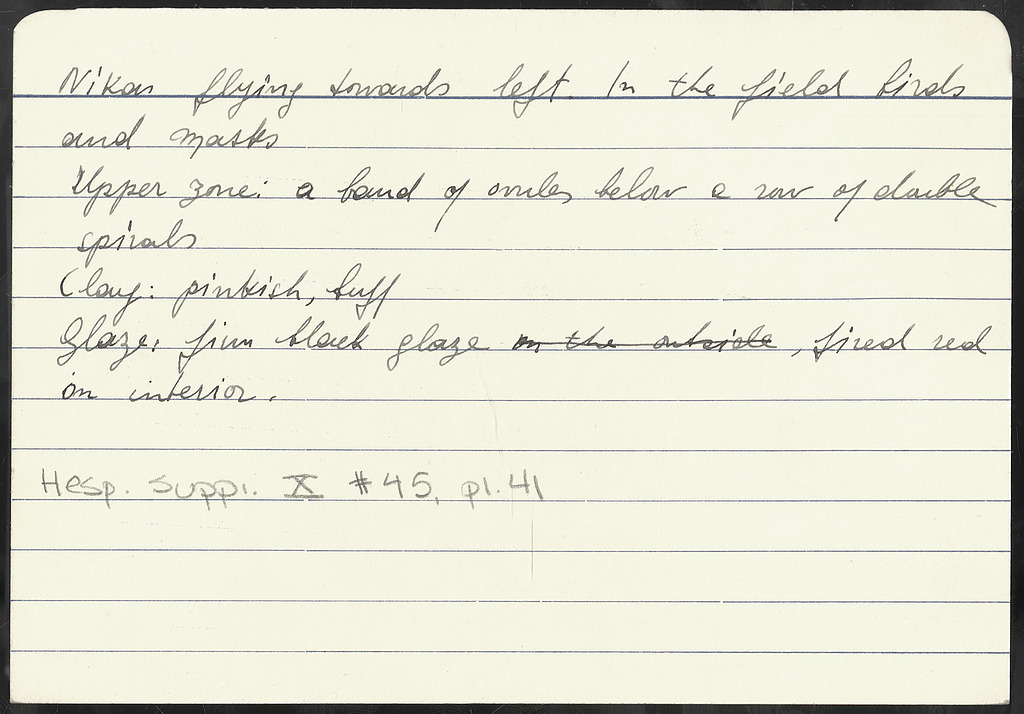 Nikai flying towards left. In the field birds
and masks
Upper zone: a band of ovules below a row of double
spirals
Clay: pinkish, buff
Glaze: firm black glaze on the outside, fired red
on interior.
Hesp. Suppl. X #45, pl. 41